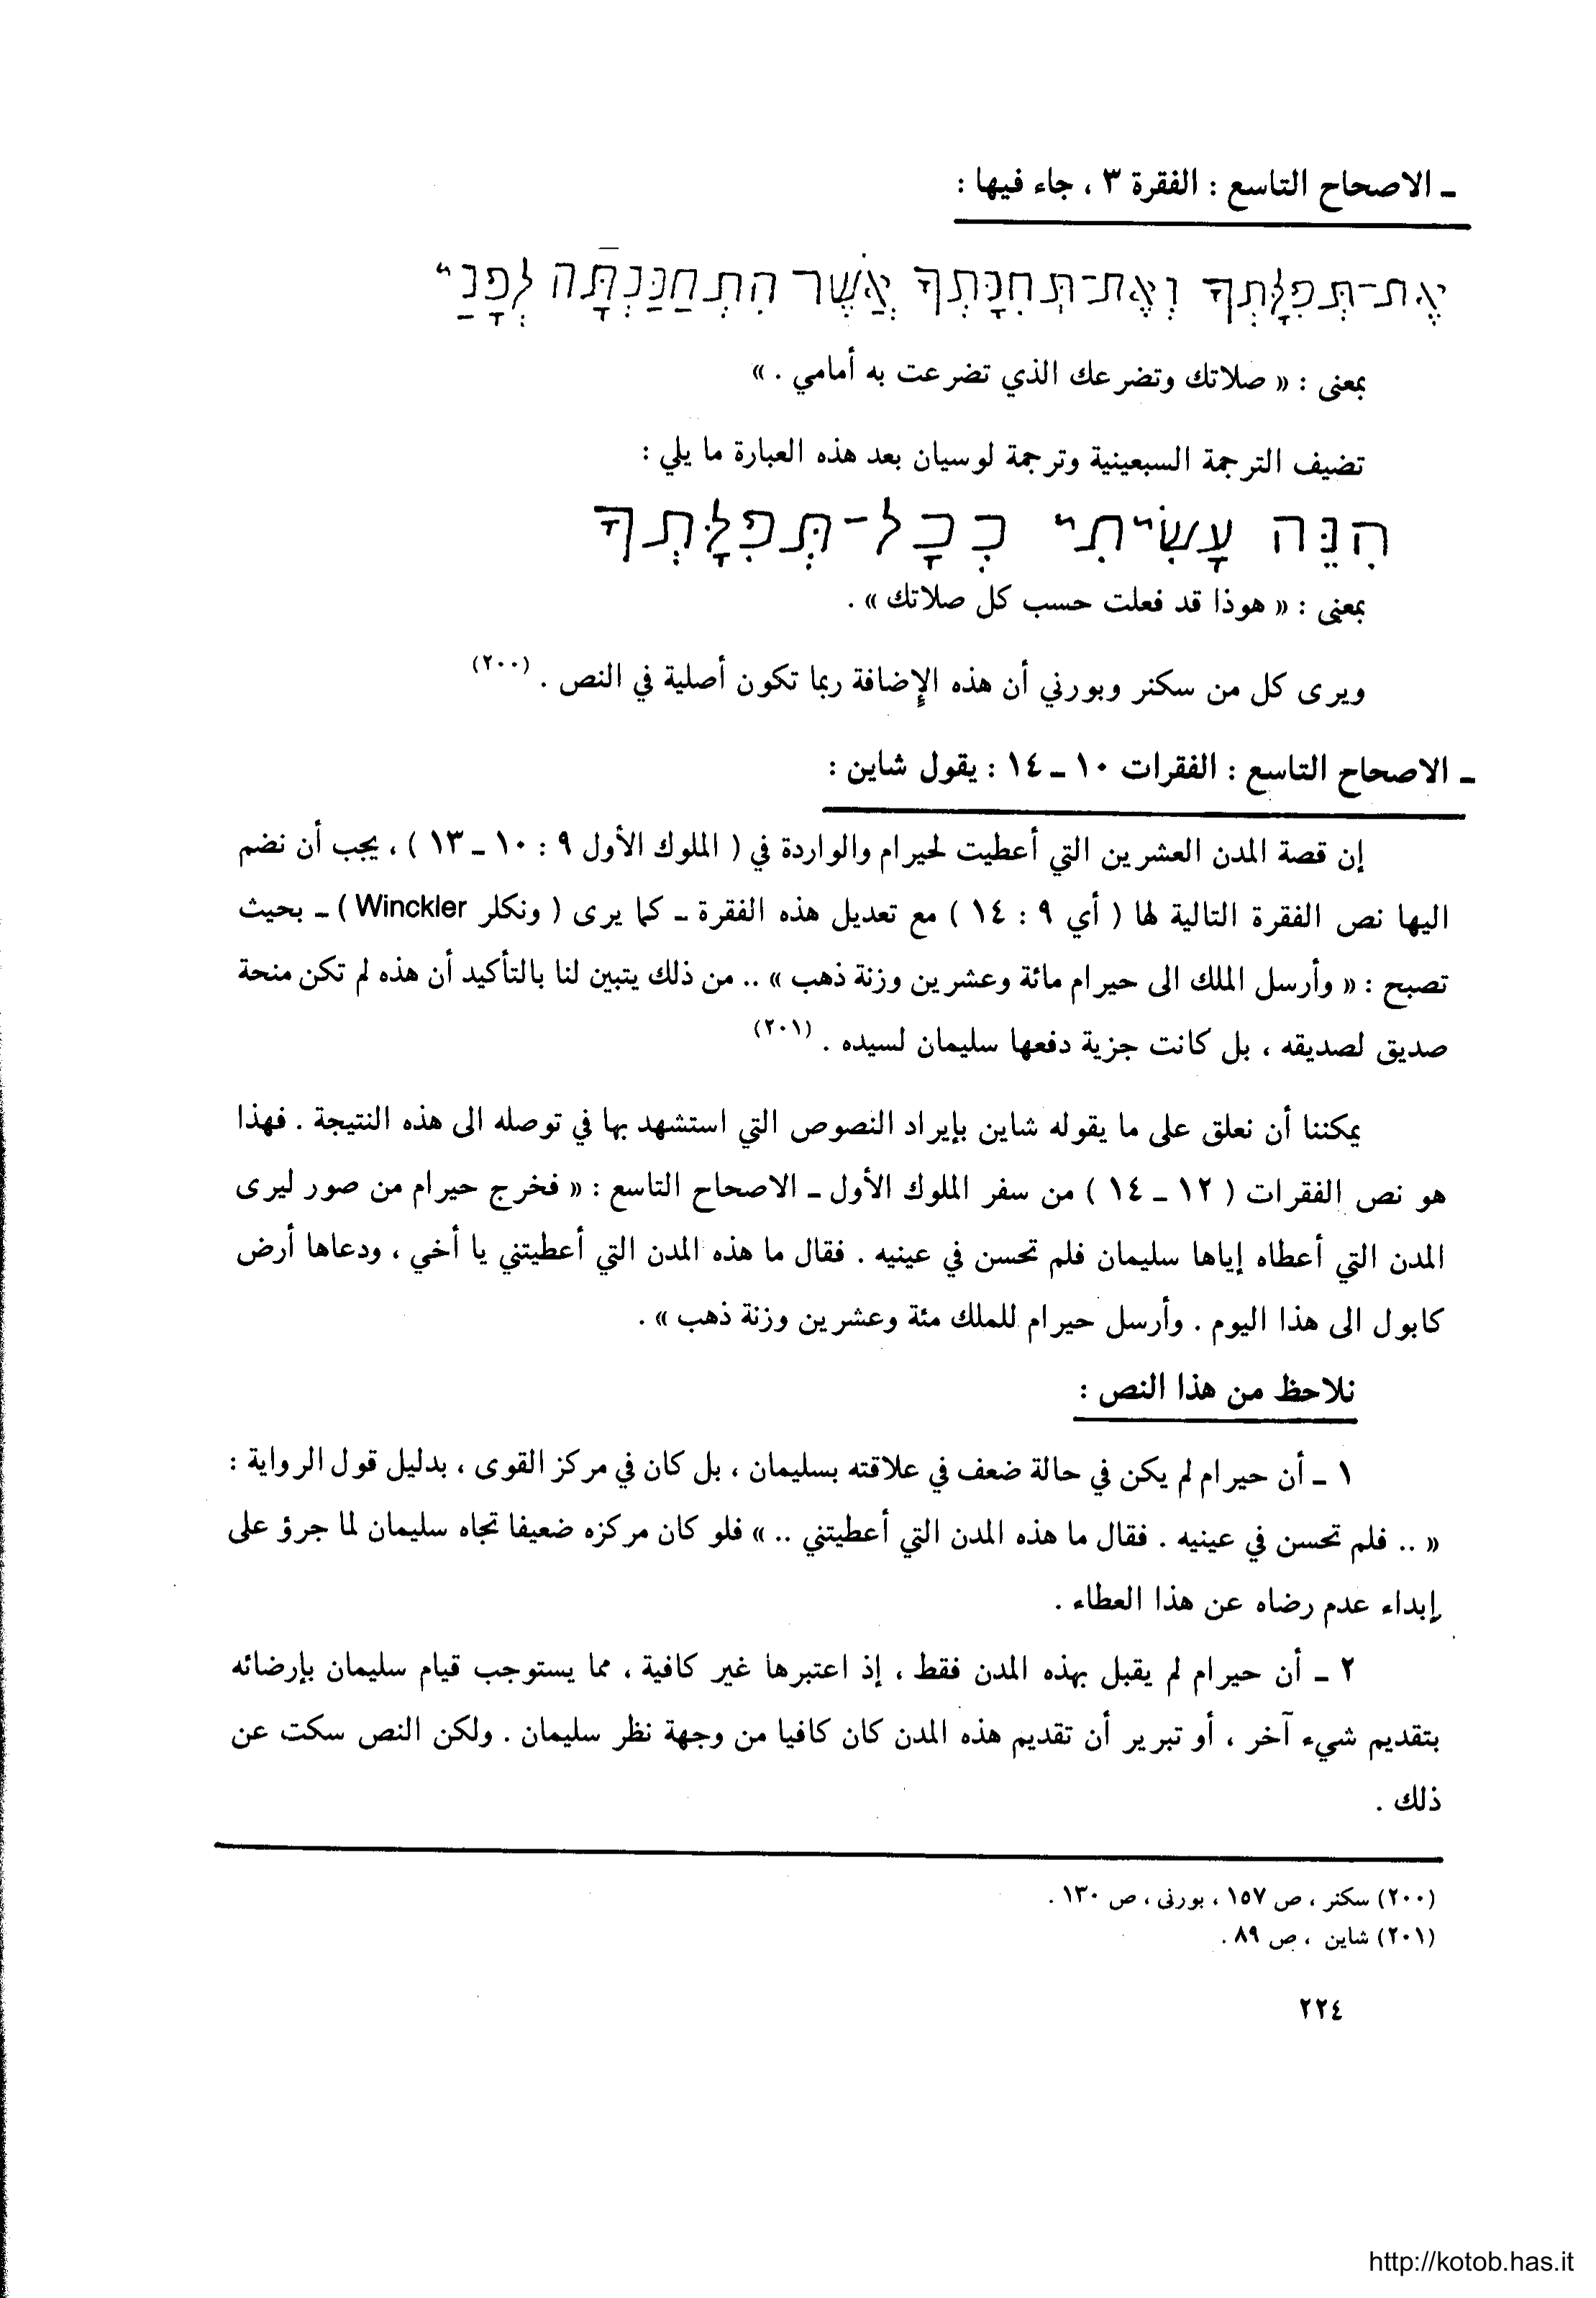 ـ الاصحاح التاسع : الفقرة ٣ ، جاء فيها :
אֶת־תְּפִלָּתְךָ וְאֶת־תְּחִנָּתְךָ אֲשֶׁר הִתְחַנַּנְתָּה לְפָנַי
بمعنى : « صلاتك وتضرعك الذي تضرعت به أمامي . »
تضيف الترجمة السبعينية وترجمة لوسيان بعد هذه العبارة ما يلي :
הִנֵּה עָשִׂיתִי כְּכָל־תְּפִלָּתְךָ
بمعنى : « هوذا قد فعلت حسب كل صلاتك » .
ويرى كل من سكنر وبورني أن هذه الإضافة ربما تكون أصلية في النص . (٢٠٠)
ـ الاصحاح التاسع : الفقرات ١٠ ـ ١٤ : يقول شاين :
إن قصة المدن العشرين التي أعطيت لحيرام والواردة في ( الملوك الأول ٩ : ١٠ ـ ١٣ ) ، يجب أن نضم
اليها نص الفقرة التالية لها ( أي ٩ : ١٤ ) مع تعديل هذه الفقرة ـ كما يرى ( ونكلر Winckler ) ـ بحيث
تصبح : « وأرسل الملك الى حيرام مائة وعشرين وزنة ذهب » .. من ذلك يتبين لنا بالتأكيد أن هذه لم تكن منحة
صديق لصديقه ، بل كانت جزية دفعها سليمان لسيده . (٢٠١)
يمكننا أن نعلق على ما يقوله شاين بإيراد النصوص التي استشهد بها في توصله الى هذه النتيجة . فهذا
هو نص الفقرات ( ١٢ ـ ١٤ ) من سفر الملوك الأول ـ الاصحاح التاسع : « فخرج حيرام من صور ليرى
المدن التي أعطاه إياها سليمان فلم تحسن في عينيه . فقال ما هذه المدن التي أعطيتني يا أخي ، ودعاها أرض
كابول الى هذا اليوم . وأرسل حيرام للملك مئة وعشرين وزنة ذهب » .
نلاحظ من هذا النص :
١ ـ أن حيرام لم يكن في حالة ضعف في علاقته بسليمان ، بل كان في مركز القوى ، بدليل قول الرواية :
« .. فلم تحسن في عينيه . فقال ما هذه المدن التي أعطيتني .. » فلو كان مركزه ضعيفا تجاه سليمان لما جرؤ على
إبداء عدم رضاه عن هذا العطاء .
٢ ـ أن حيرام لم يقبل بهذه المدن فقط ، إذ اعتبرها غير كافية ، مما يستوجب قيام سليمان بإرضائه
بتقديم شيء آخر ، أو تبرير أن تقديم هذه المدن كان كافيا من وجهة نظر سليمان . ولكن النص سكت عن
ذلك .
(٢٠٠) سكنر ، ص ١٥٧ ، بورنى ، ص ١٣٠ .
(٢٠١) شاين ، ص ٨٩ .
٢٢٤
http://kotob.has.it